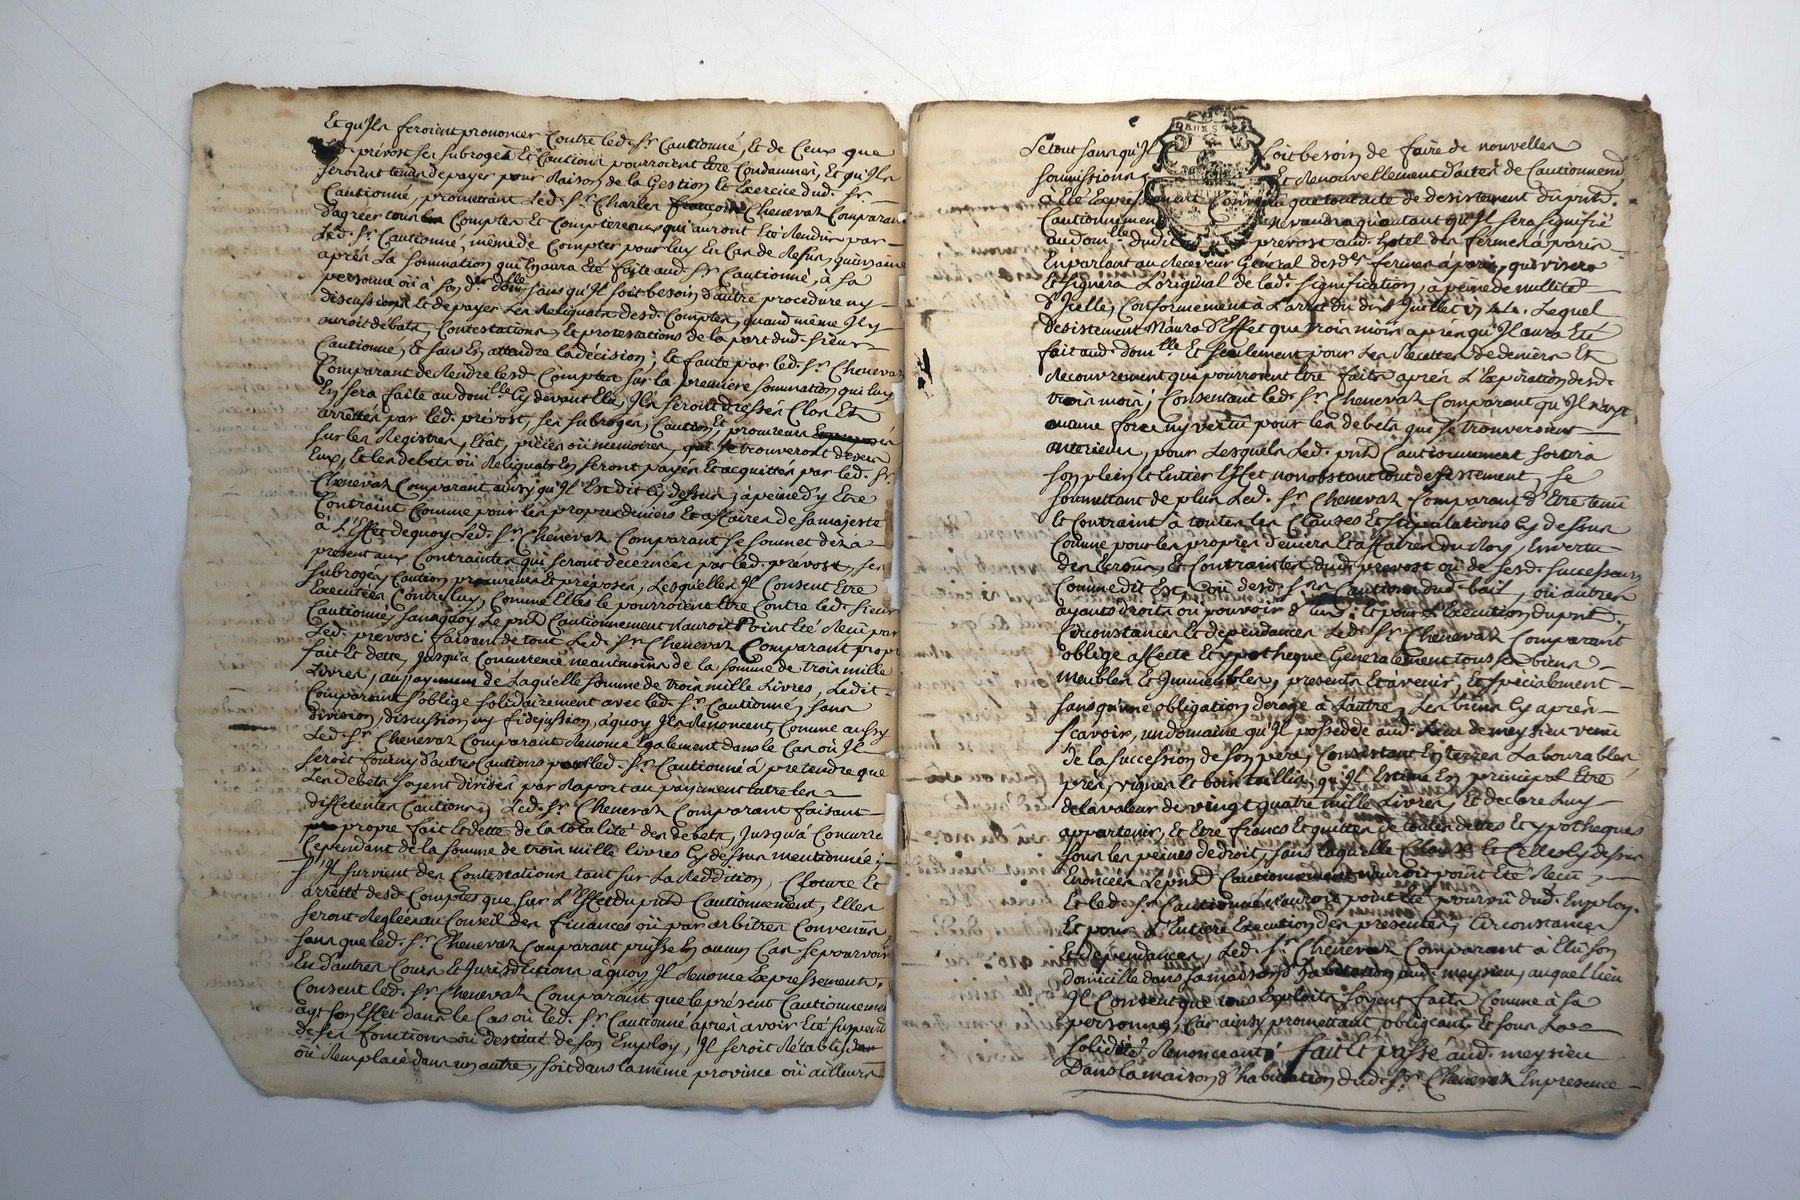 Et qu'Ils feroient prononcer Contre led. Sr. Cautionné, Et de Ceux que
led. prévost ses subrogés Et Cautions pourroient Etre Condamnés, Et qu'Ils
seroient tenus de payer pour Raison de la Gestion Et Exercice dud. Sr.
Cautionné, promettant Led. Sr. Charles françois Chenevaz Comparant
d'agréer tous les Comptes Et Comptereaux qui auront Eté Rendus par
Led. Sr. Cautionné, même de Compter pour luy En Cas de Refus, quinzaine
après La sommation qui En aura Eté faite aud. Sr. Cautionné, à sa
personne où à sond. domlle sans qu'Il soit besoin d'autre procedure ny
discussions, Et de payer Les Reliquats desd. Comptes, quand même Il y
auroit debats, Contestations, Et protestations de la part dud. Sieur
Cautionné, Et sans En attendre la décision; Et faute par led. Sr. Chenevaz
Comparant de Rendre lesd. Comptes sur la première sommation qui luy
En sera faite au domlle Cy devant Elû, Ils seront dressés Clos Et
arrêtés par led. prévost, ses subrogés, Caution, Et procureurs
sur les Registres, Etât, pièces où memoires, qui se trouveront devers
Eux, Et les debets où Reliquats En seront payés Et acquittés par led. Sr.
Chenevaz Comparant ainsy qu'Il Est dit Cy dessus, à peine d'y Etre
Contraint Comme pour les propres deniers Et affaires de sa majesté
à L'Effet de quoy Led. Sr. Chenevaz Comparant se soumet dèz à
présent aux Contraintes qui seront décernées par led. prévost, ses
subrogés, Caution procureurs Et préposés, Lesquelles Il Consent Etre
Executées Contre luy, Comme Elles le pourroient Etre Contre led. Sieur
Cautionné, sans quoy Le pnt Cautionnement n'auroit Point Eté Reçû par
Led. prévost; faisant de tout Led. Sr. Chenevaz Comparant propre
fait Et dette, jusqu'à Concurrence néanmoins de la somme de trois mille
Livres, au payement de Laquelle somme de trois mille Livres, Ledit
Comparant s'oblige solidairement avec led. Sr. Cautionné, sans
division, discussion, ny fidejussion, à quoy Ils Renoncent, Comme aussy
Led. Sr. Chenevaz Comparant Renonce Egalement dans le Cas où Il
seroit fourny d'autres Cautions pour led. Sr. Cautionné à prétendre que
Les debets soyent divisés par Raport au payement Entre les
différentes Cautions; Led. Sr. Chenevaz Comparant faisant
propre fait Et dette de la totalité des debets, Jusqu'à Concurrence
Cependant de la somme de trois mille livres Cy dessus mentionnée;
S'Il survient des Contestations tant sur La Reddition, Cloture Et
arrêtté desd. Comptes que sur L'Effet du pnt Cautionnement, Elles
seront Reglées au Conseil des finances où par arbitres Convenus,
sans que led. Sr. Chenevaz Comparant puisse En aucun Cas se pourvoir
En d'autres Cours Et Jurisdictions à quoy Il Renonce Expressement.
Consent led. Sr. Chenevaz Comparant que le présent Cautionnement
ayt son Effet dans le Cas où led. Sr. Cautionné après avoir Eté suspendu
de ses fonctions où destitué de son Employ, Il seroit Rétably
où Remplacé dans un autre, soit dans la même province où ailleurs
Le tout sans qu'Il soit besoin de faire de nouvelles
soumissions Et Renouvellement d'actes de Cautionnement
à Eté Expressement Convenu que tout acte de desistement du pnt.
Cautionnement ne vaudra qu'autant qu'Il sera signifié
au domlle. dudit prévost aud. hotel des fermes à paris
En parlant au Receveur Général desd. fermes à paris, qui visera
Et signera L'original de lad. signification, à peine de nullité
d'Icelle, Conformement à L'arrêt du Juillet Lequel
desistement N'aura d'Effet que trois mois après qu'Il aura Eté
fait aud. domlle Et seulement pour Les Recettes de deniers Et
Recouvrement qui pourroient Etre faits après L'Expiration desd.
trois mois; Consentant led. Sr. Chenevaz Comparant qu'Il n'ayt
aucune force ny vertu pour les debets qui se trouveroient
antérieurs, pour Lesquels Led. pnt Cautionnement sortira
son plein et Entier Effet nonobstant tout desistement, se
soumettant de plus Led. Sr. Chenevaz Comparant d'Etre tenû
Et Contraint à toutes les Clauses Et stipulations Cy dessus
Comme pour les propres deniers Et affaires du Roy, En vertu
des Ecrous, Et Contraintes dud. prévost où de sesd. successeurs
Comme dit Est, où desd. Srs Cautions dud. bail, où autres
ayants droits où pouvoir d'Eux; Et pour L'Exécution du pnt.
Circonstances Et dépendances Led. Sr. Chenevaz Comparant
oblige affecte Et ypotheque Generalement tous ses biens
meubles Et Immeubles, présents Et avenir, Et spécialement
sans qu'une obligation déroge à L'autre, Les biens Cy après
sçavoir, un domaine qu'Il possède aud. Lieu de meysieu venû
de la succession de son père, Consistant En terres Labourables
prés, vignes Et bois taillis, qu'Il Estime En principal Etre
de la valeur de vingt quatre mille Livres, Et déclare luy
appartenir, Et Etre francs Et quittes de toutes dettes Et ypotheques
sous les peines de droit, sans laquelle Clause Et Celles Cy dessus
Enoncées Le pnt Cautionnement n'auroit point Eté Reçû,
Et led. Sr. Cautionné n'auroit point Eté pourvû dud. Employ.
Et pour L'Entière Exécution des présentes, Circonstances
Et dépendances, Led. Sr. Chenevaz Comparant à Elû son
domicille dans sa maison d'habitation aud. meysieu, auquel lieu
Il Consent que tous Exploits soyent faits Comme à sa
personne, Car ainsy promettant obligeant, Et sous La
solidité Renonceant; fait Et passé aud. meysieu
Dans la maison d'habitation dud. Sr. Chenevaz En presence